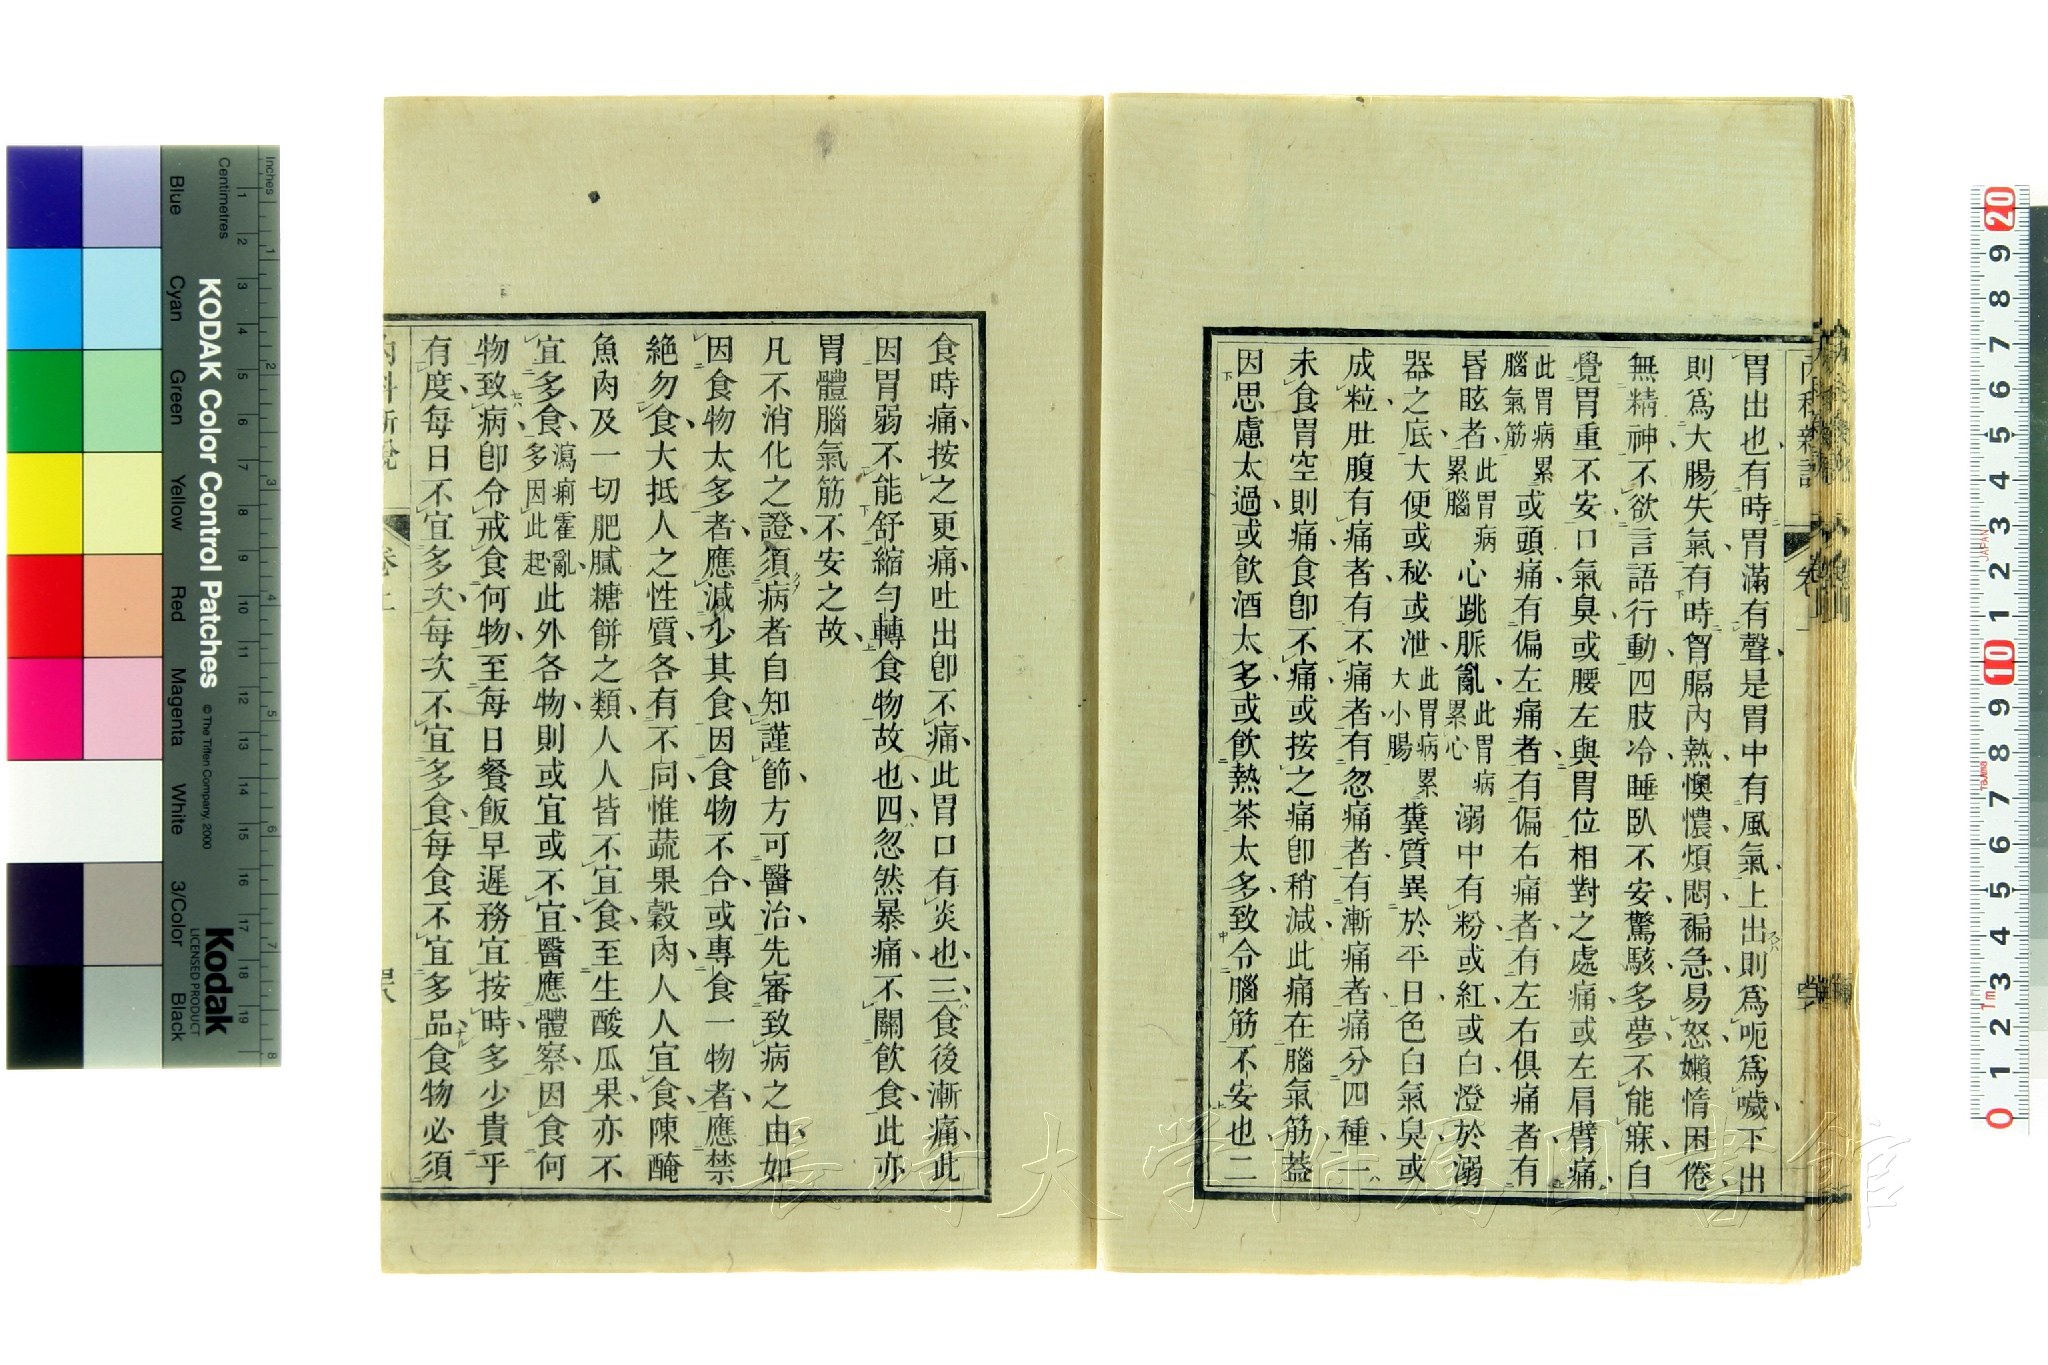 胃出也有時胃滿有聲是胃中有風氣上出則爲呃爲噦下出
則爲大腸失氣有時胷膈內熱懊憹煩悶褊急易怒嬾惰困倦
無精神不欲言語行動四肢冷睡臥不安驚駭多夢不能寐自
覺胃重不安口氣臭或腰左與胃位相對之處痛或左肩臂痛
此胃病累
腦氣筋
或頭痛有偏左痛者有偏右痛者有左右俱痛者有
昏眩者
此胃病
累腦
心跳脈亂
此胃病
累心
溺中有粉或紅或白澄於溺
器之底大便或秘或泄
此胃病累
大小腸
糞質異於平日色白氣臭或
成粒肚腹有痛者有不痛者有忽痛者有漸痛者痛分四種一
未食胃空則痛食卽不痛或按之痛卽稍減此痛在腦氣筋葢
因思慮太過或飲酒太多或飲熱茶太多致令腦筋不安也二
食時痛按之更痛吐出卽不痛此胃口有炎也三食後漸痛此
因胃弱不能舒縮勻轉食物故也四忽然暴痛不關飲食此亦
胃體腦氣筋不安之故
凡不消化之證須病者自知謹節方可醫治先審致病之由如
因食物太多者應減少其食因食物不合或專食一物者應禁
絶勿食大抵人之性質各有不同惟蔬果穀肉人人宜食陳醃
魚肉及一切肥膩糖餅之類人人皆不宜食至生酸瓜果亦不
宜多食
瀉痢霍亂
多因此起
此外各物則或宜或不宜醫應體察因食何
物致病卽令戒食何物至每日餐飯早遲務宜按時多少貴乎
有度每日不宜多次每次不宜多食每食不宜多品食物必須
內科新說
卷上
長崎大学附属図書館
KODAK Color Control Patches
© The Tiffen Company, 2000
Kodak
LICENSED PRODUCT
Inches
Centimetres
Blue
Cyan
Green
Yellow
Red
Magenta
White
3/Color
Black